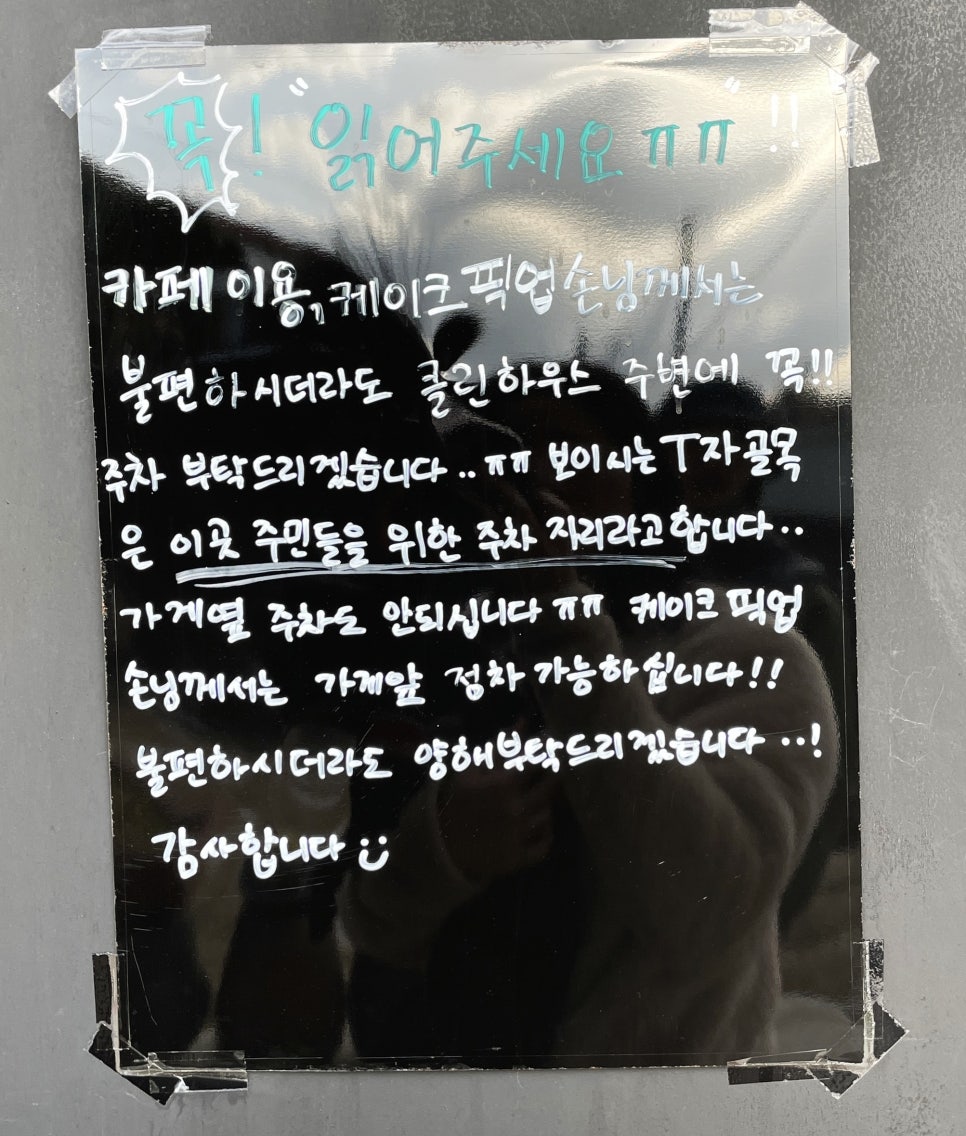 꼭! "읽어주세요ㅠㅠ"!!
카페 이용, 케이크픽업손님께서는
불편하시더라도 클린하우스 주변에 꼭!!
주차 부탁드리겠습니다..ㅠㅠ 보이시는 T자골목
은 이곳 주민들을 위한 주차 자리라고합니다..
가게옆 주차도 안되십니다ㅠㅠ 케이크픽업
손님께서는 가게앞 정차가능하십니다!!
불편하시더라도 양해부탁드리겠습니다..!
감사합니다 :)